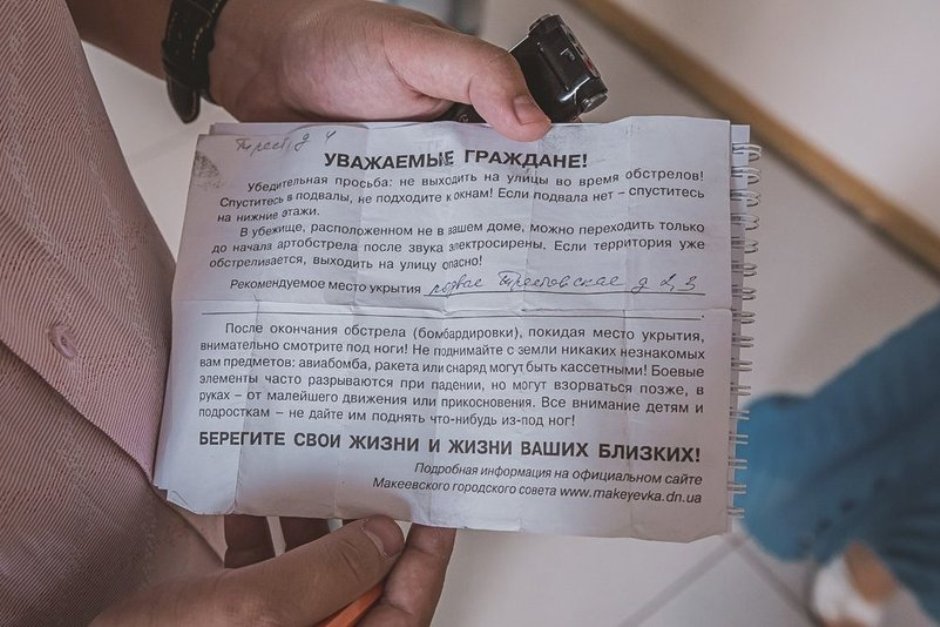 Трест, д 4
УВАЖАЕМЫЕ ГРАЖДАНЕ!
Убедительная просьба: не выходить на улицы во время обстрелов!
Спуститесь в подвалы, не подходите к окнам! Если подвала нет – спуститесь
на нижние этажи.
В убежище, расположенном не в вашем доме, можно переходить только
до начала артобстрела после звука электросирены. Если территория уже
обстреливается, выходить на улицу опасно!
Рекомендуемое место укрытия Трестовская д 2, 3
После окончания обстрела (бомбардировки), покидая место укрытия,
внимательно смотрите под ноги! Не поднимайте с земли никаких незнакомых
вам предметов: авиабомба, ракета или снаряд могут быть кассетными! Боевые
элементы часто разрываются при падении, но могут взорваться позже, в
руках – от малейшего движения или прикосновения. Все внимание детям и
подросткам – не дайте им поднять что-нибудь из-под ног!
БЕРЕГИТЕ СВОИ ЖИЗНИ И ЖИЗНИ ВАШИХ БЛИЗКИХ!
Подробная информация на официальном сайте
Макеевского городского совета www.makeyevka.dn.ua